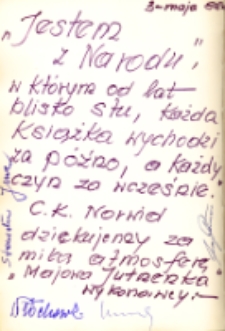 3-maja
"Jestem
z Narodu",
w którym od lat
blisko stu, każda
książka wychodzi
za późno, a każdy
czyn za wcześnie.
C.K. Norwid
dziękujemy za
miłą atmosferę
"Majowa Jutrzenka
wykonawcy:-